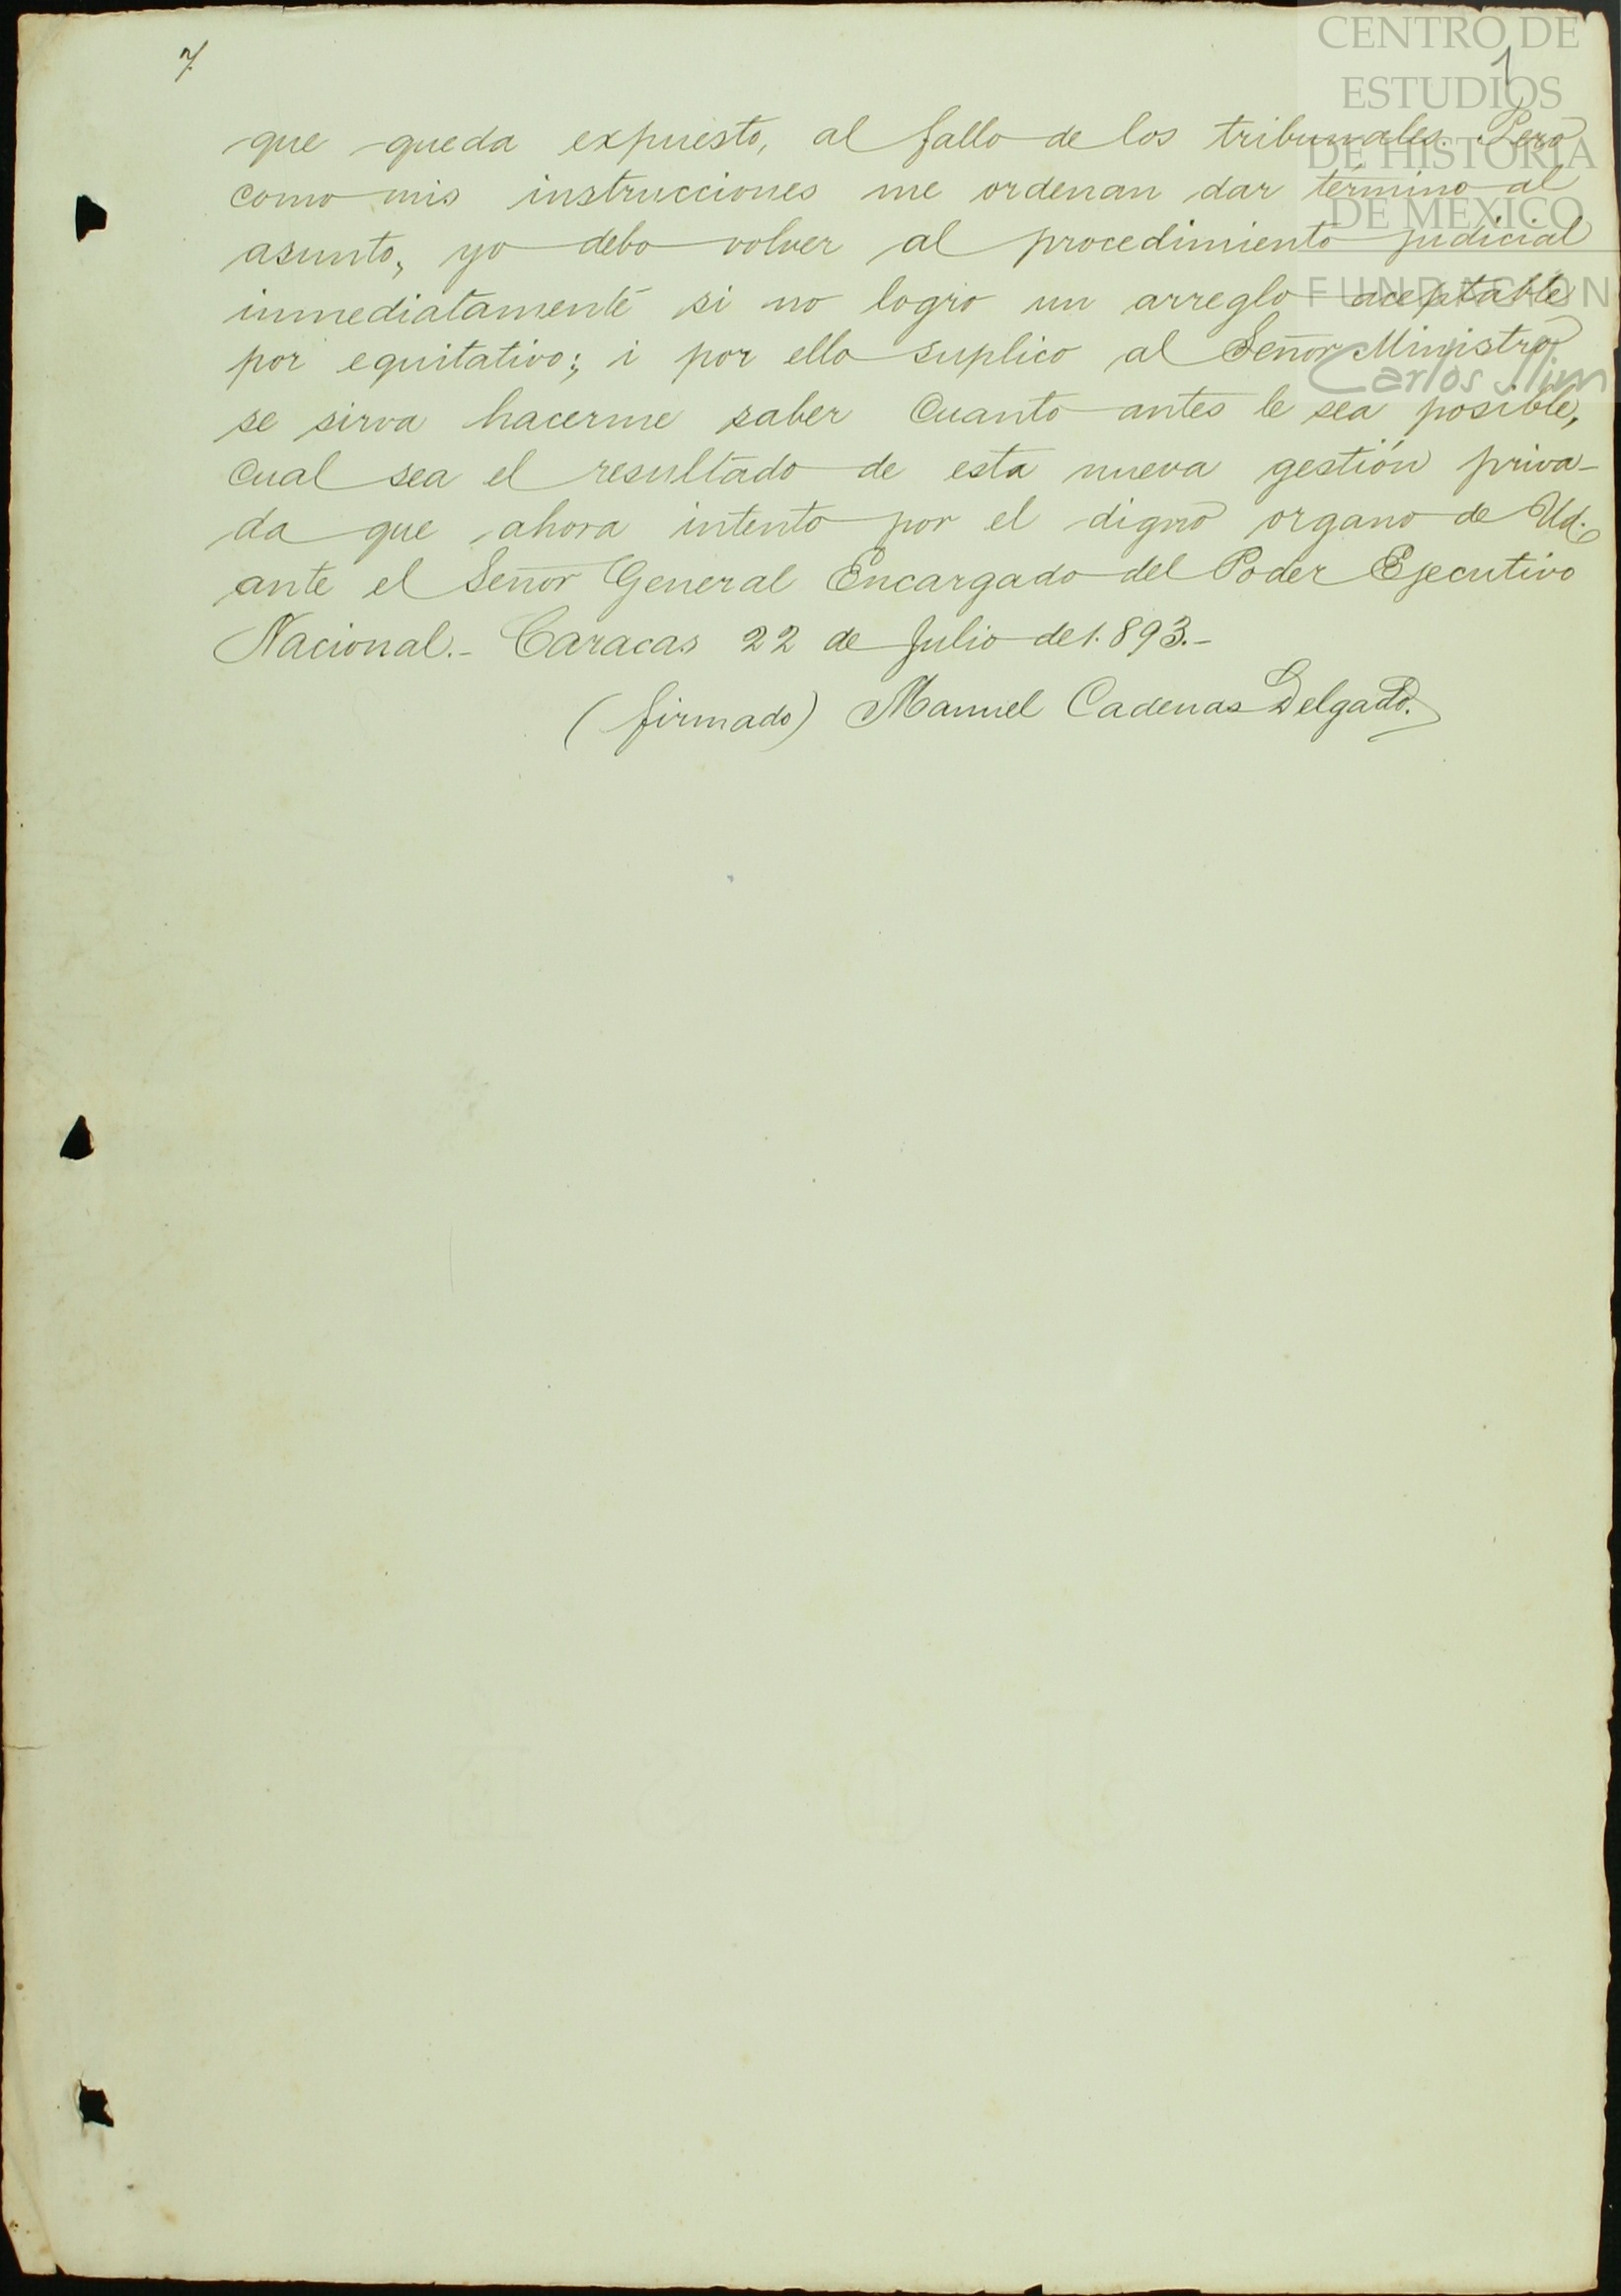 7.
1
CENTRO DE
ESTUDIOS
DE HISTORIA
DE MÉXICO
FUNDACIÓN
Carlos Slim
que queda expuesto, al fallo de los tribunales. Pero
como mis instrucciones me ordenan dar término al
asunto, yo debo volver al procedimiento judicial
inmediatamente si no logro un arreglo aceptable
por equitativo; i por ello suplico al Señor Ministro
se sirva hacerme saber cuanto antes le sea posible,
cual sea el resultado de esta nueva gestión priva-
da que ahora intento por el digno organo de Ud.
ante el Señor General Encargado del Poder Ejecutivo
Nacional.- Caracas 22 de Julio de 1.893.-
(firmado) Manuel Cadenas Delgado.
JOSE